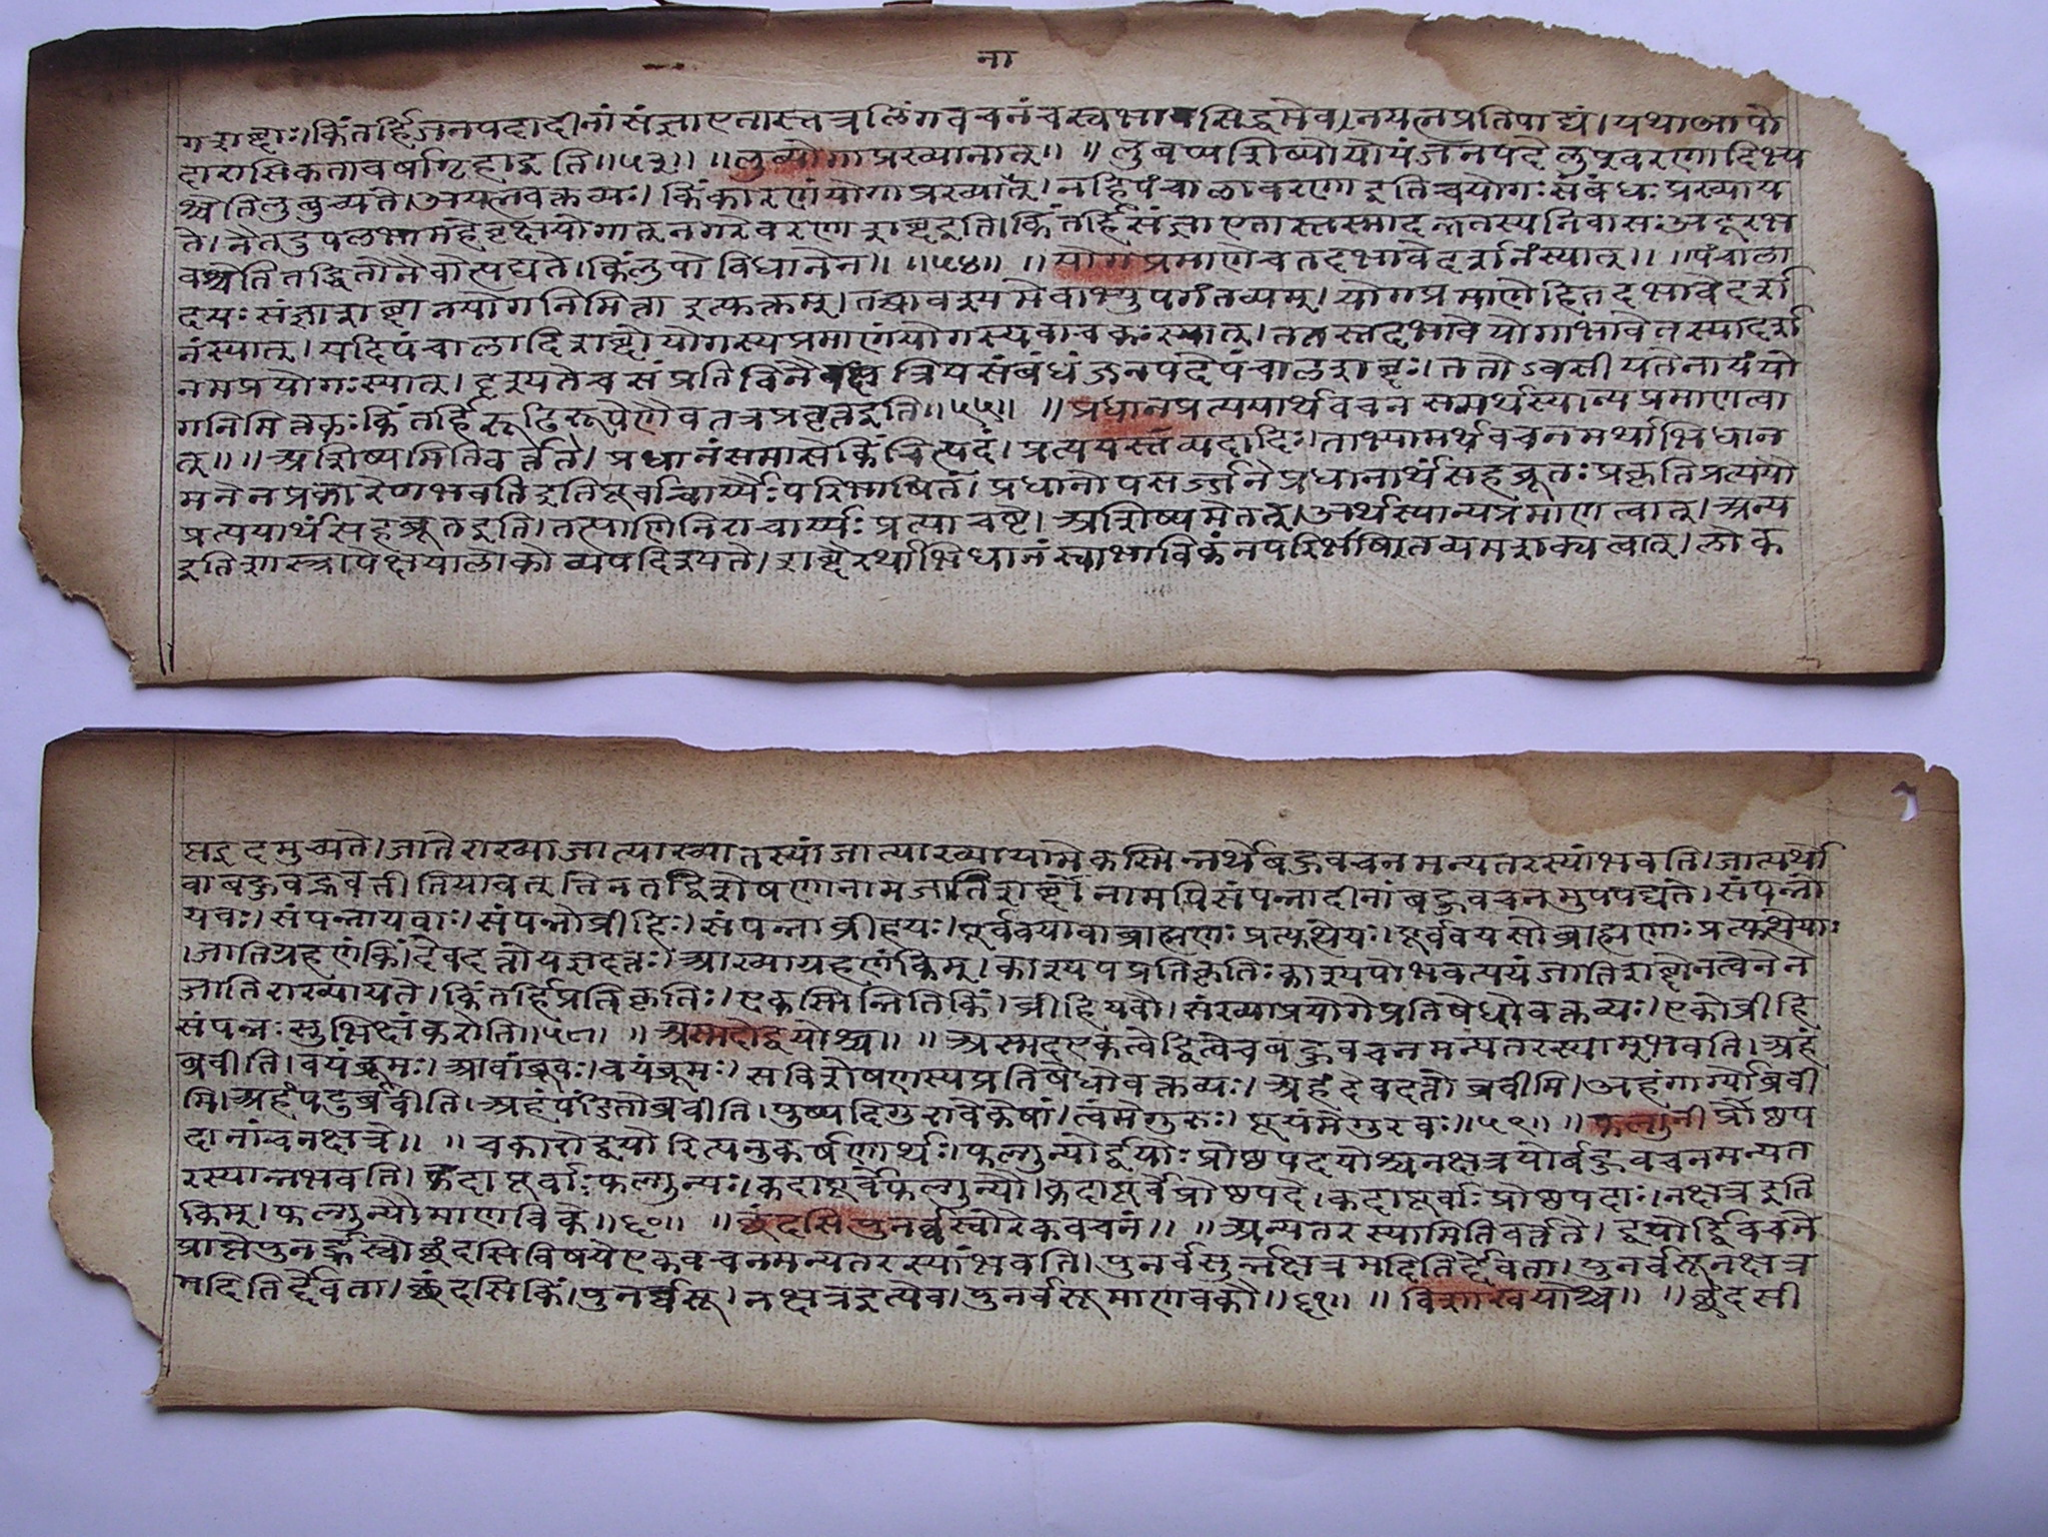 ना
गशब्दाः।किंतर्हिजनपदादीनांसंज्ञाएतास्तत्रलिंगवचनंचस्वभावसिद्धमेव।नयत्नप्रतिपाद्यं।यथाआपो
दाराःसिकतावर्षागृहाइति॥५३॥ ॥लुब्योगाप्रख्यानात्॥ ॥लुबप्यशिष्योयोयंजनपदेलुप्वरणादिभ्य
श्चेतिलुबुच्यते।अयंनवक्तव्यः।किंकारणंयोगाप्रख्यानात्।नहिपंचालावरणाइतिचयोगःसंबंधःप्रख्याय
ते।नैतदुपलभामहेवृक्षयोगात्नगरेवरणाशब्दइति।किंतर्हिसंज्ञाएतास्तस्मादत्रतस्यनिवासःअदूरभ
वश्चेतितद्धितोनैवोत्पद्यते।किंलुपोविधानेन॥ ॥५४॥ ॥योगप्रमाणेचतदभावेदर्शनंस्यात्॥ ॥पंचाला
दयःसंज्ञाशब्दानयोगनिमित्ताइत्युक्तम्।तच्चावश्यमेवाभ्युपगंतव्यम्।योगप्रमाणेहितदभावेदर्श
नंस्यात्।यदिपंचालादिशब्दोयोगस्यप्रमाणंयोगस्यवाचकःस्यात्।ततस्तदभावेयोगाभावेतस्यादर्श
नमप्रयोगःस्यात्।दृश्यतेचसंप्रतिविनैवक्षत्रियसंबंधंजनपदेपंचालशब्दः।ततोऽवसीयतेनायंयो
गनिमित्तकःकिंतर्हिरूढिरूपेणैवतत्रप्रवृत्तइति॥५५॥ ॥प्रधानप्रत्ययार्थवचनमर्थस्यान्यप्रमाणत्वा
त्॥ ॥अशिष्यमितिवर्त्तते।प्रधानंसमासेकिंचित्पदं।प्रत्ययस्तव्यदादिः।ताभ्यामर्थवचनमर्थाभिधान
मनेनप्रकारेणभवतिइतिपूर्वाचार्य्यैःपरिभाषितं।प्रधानोपसर्ज्जनेप्रधानार्थंसहब्रूतःप्रकृतिप्रत्ययौ
प्रत्ययार्थंसहब्रूतइति।तत्पाणिनिराचार्य्यःप्रत्याचष्टे।अशिष्यमेतत्।अर्थस्यान्यप्रमाणत्वात्।अन्य
इतिशास्त्रापेक्षयालोकोव्यपदिश्यते।शब्दैरर्थाभिधानंस्वाभाविकंनपरिभाषितव्यमशक्यत्वात्।लोक
षइदमुच्यते।जातेराख्याजात्याख्यातस्यांजात्याख्यायामेकस्मिन्नर्थेबहुवचनमन्यतरस्यांभवति।जात्यर्थो
वाबहुवद्भवतीतियावत्तेनतद्विशेषणानामजातिशब्दानामपिसंपन्नादीनांबहुवचनमुपपद्यते।संपन्नो
यवः।संपन्नायवाः।संपन्नोव्रीहिः।संपन्नाव्रीहयः।पूर्ववयाब्राह्मणःप्रत्युत्थेयः।पूर्ववयसोब्राह्मणाःप्रत्युत्थेयाः
।जातिग्रहणंकिं।देवदत्तोयज्ञदत्तः।आख्याग्रहणंकिम्।काश्यपप्रतिकृतिःकाश्यपोभवत्ययंजातिशब्दोनत्वनेन
जातिराख्यायते।किंतर्हिप्रतिकृतिः।एकस्मिन्नितिकिं।व्रीहियवौ।संख्याप्रयोगेप्रतिषेधोवक्तव्यः।एकोव्रीहि
संपन्नःसुभिक्षंकरोति॥५८॥ ॥अस्मदोद्वयोश्च॥ ॥अस्मदएकत्वेद्वित्वेचबहुवचनमन्यतरस्याम्भवति।अहं
ब्रवीति।वयंब्रूमः।आवांब्रूवः।वयंब्रूमः।सविशेषणस्यप्रतिषेधोवक्तव्यः।अहंदेवदत्तोब्रवीमि।अहंगार्ग्योब्रवी
मि।अहंपटुर्ब्रवीति।अहंपंडितोब्रवीति।युष्पदिगुरावेकेषां।त्वंमेगुरुः।यूयंमेगुरवः॥५९॥ ॥फल्गुनीप्रोष्ठप
दानांचनक्षत्रे॥ ॥चकारोद्वयोरित्यनुकर्षणार्थः।फल्गुन्योर्द्वयोःप्रोष्ठपदयोश्चनक्षत्रयोर्बहुवचनमन्यत
रस्यान्भवति।कदापूर्वाःफल्गुन्यः।कदापूर्वेफल्गुन्यौ।कदापूर्वेप्रोष्ठपदे।कदापूर्वाःप्रोष्ठपदाः।नक्षत्रइति
किम्।फल्गुन्यौमाणविके॥६०॥ ॥छंदसिपुनर्वस्वोरेकवचनं॥ ॥अन्यतरस्यामितिवर्त्तते।द्वयोर्द्विवचने
प्राप्तेपुनर्व्वस्वोश्छंदसिविषयेएकवचनमन्यतरस्यांभवति।पुनर्वसुर्न्नक्षत्रमदितिर्द्देवता।पुनर्वसूनक्षत्र
मदितिर्द्देवता।छंदसिकिं।पुनर्व्वसू।नक्षत्रइत्येव।पुनर्वसूमाणवकौ॥६१॥ ॥विशाखयोश्च॥ ॥छंदसी